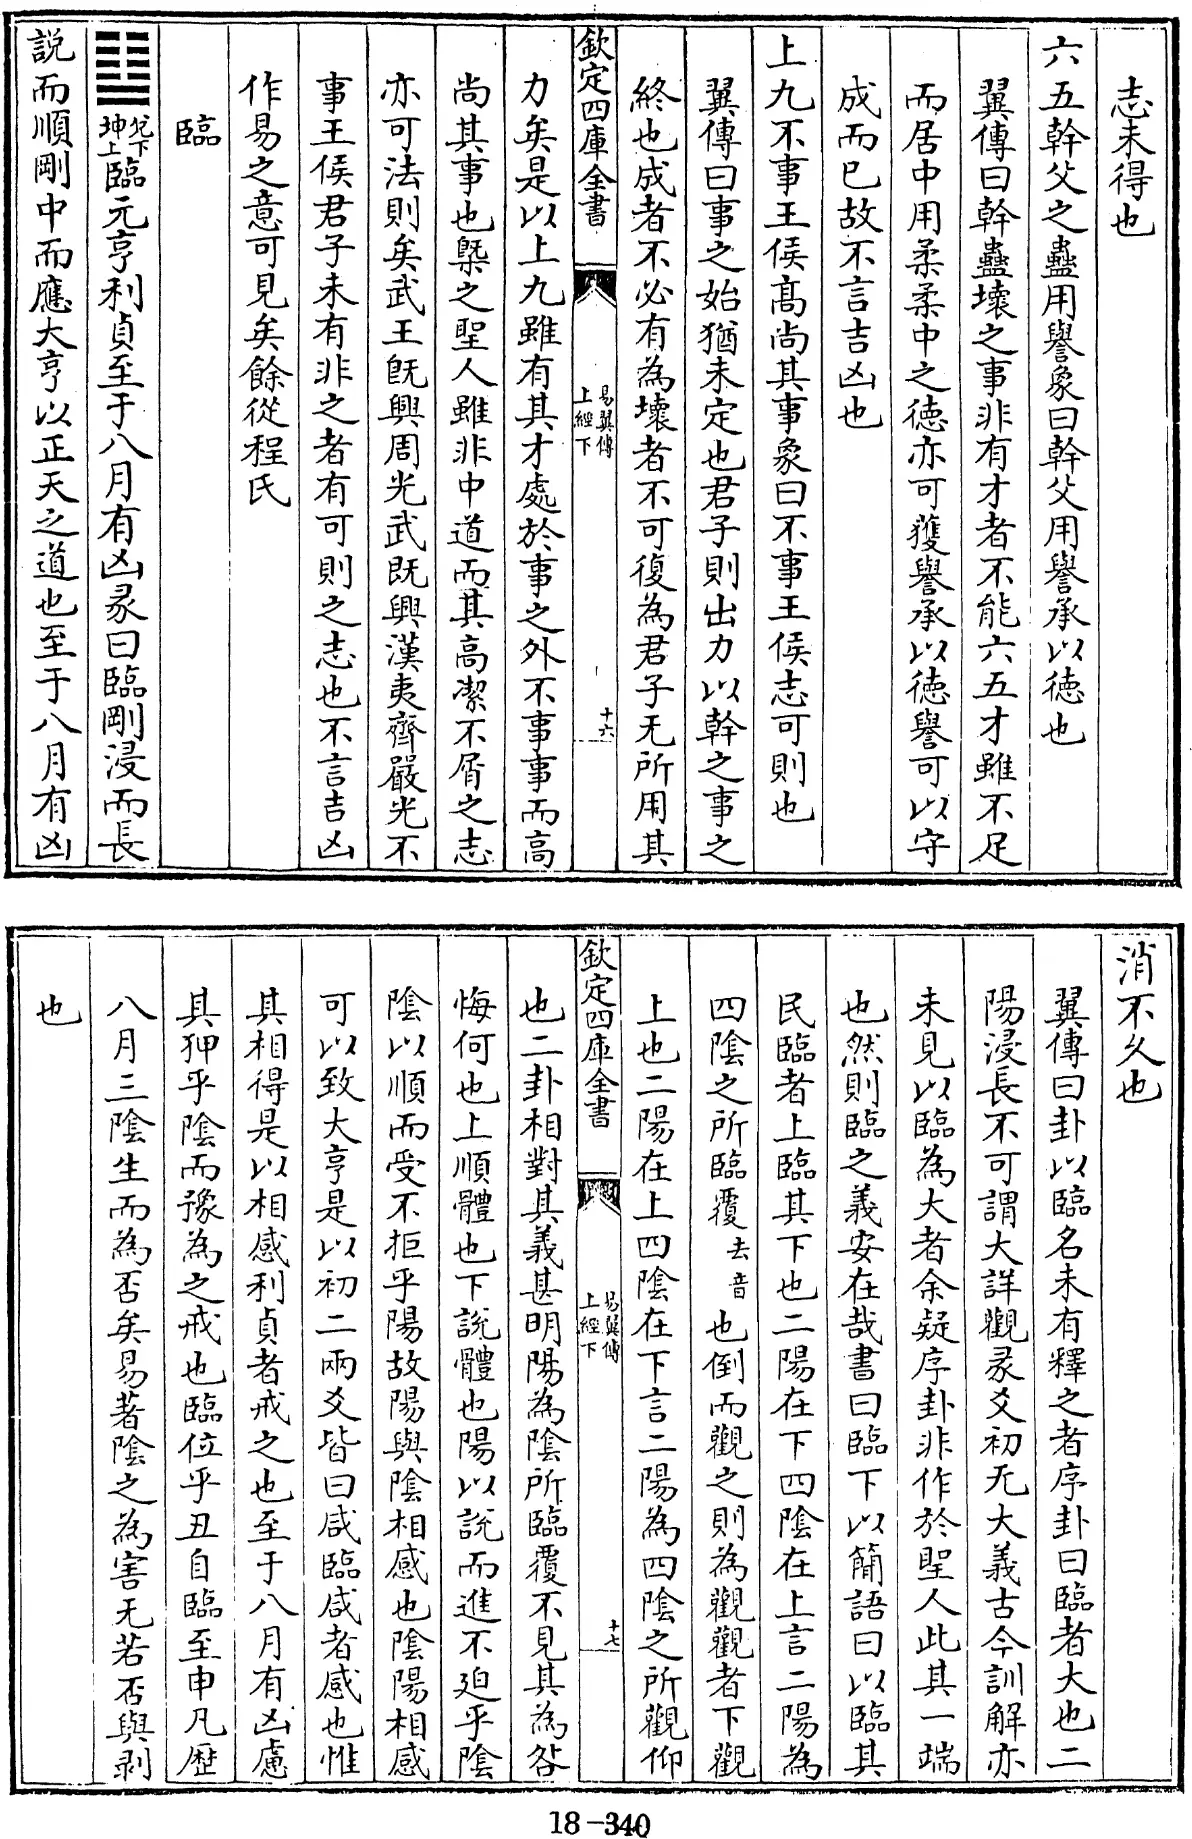 志未得也
六五幹父之蠱用譽象曰幹父用譽承以德也
翼傳曰幹蠱壞之事非有才者不能六五才雖不足
而居中用柔柔中之德亦可獲譽承以德譽可以守
成而已故不言吉凶也
上九不事王侯髙尚其事象曰不事王侯志可則也
翼傳曰事之始猶未定也君子則出力以幹之事之
終也成者不必有為壞者不可復為君子无所用其
欽定四庫全書
易翼傳
上經下
十六
力矣是以上九雖有其才處於事之外不事事而高
尚其事也槩之聖人雖非中道而其高潔不屑之志
亦可法則矣武王旣興周光武旣興漢夷齊嚴光不
事王侯君子未有非之者有可則之志也不言吉凶
作易之意可見矣餘從程氏
臨
兌下
坤上
臨元亨利貞至于八月有凶彖曰臨剛浸而長
説而順剛中而應大亨以正天之道也至于八月有凶
消不久也
翼傳曰卦以臨名未有釋之者序卦曰臨者大也二
陽浸長不可謂大詳觀彖爻初无大義古今訓解亦
未見以臨為大者余疑序卦非作於聖人此其一端
也然則臨之義安在哉書曰臨下以簡語曰以臨其
民臨者上臨其下也二陽在下四陰在上言二陽為
四陰之所臨覆去音也倒而觀之則為觀觀者下觀
上也二陽在上四陰在下言二陽為四陰之所觀仰
欽定四庫全書
易翼傳
上經下
十七
也二卦相對其義甚明陽為陰所臨覆不見其為咎
悔何也上順體也下説體也陽以説而進不廹乎陰
陰以順而受不拒乎陽故陽與陰相感也陰陽相感
可以致大亨是以初二兩爻皆曰咸臨咸者感也惟
其相得是以相感利貞者戒之也至于八月有凶慮
其狎乎陰而豫為之戒也臨位乎丑自臨至申凡歴
八月三陰生而為否矣易著陰之為害无若否與剥
也
18-340